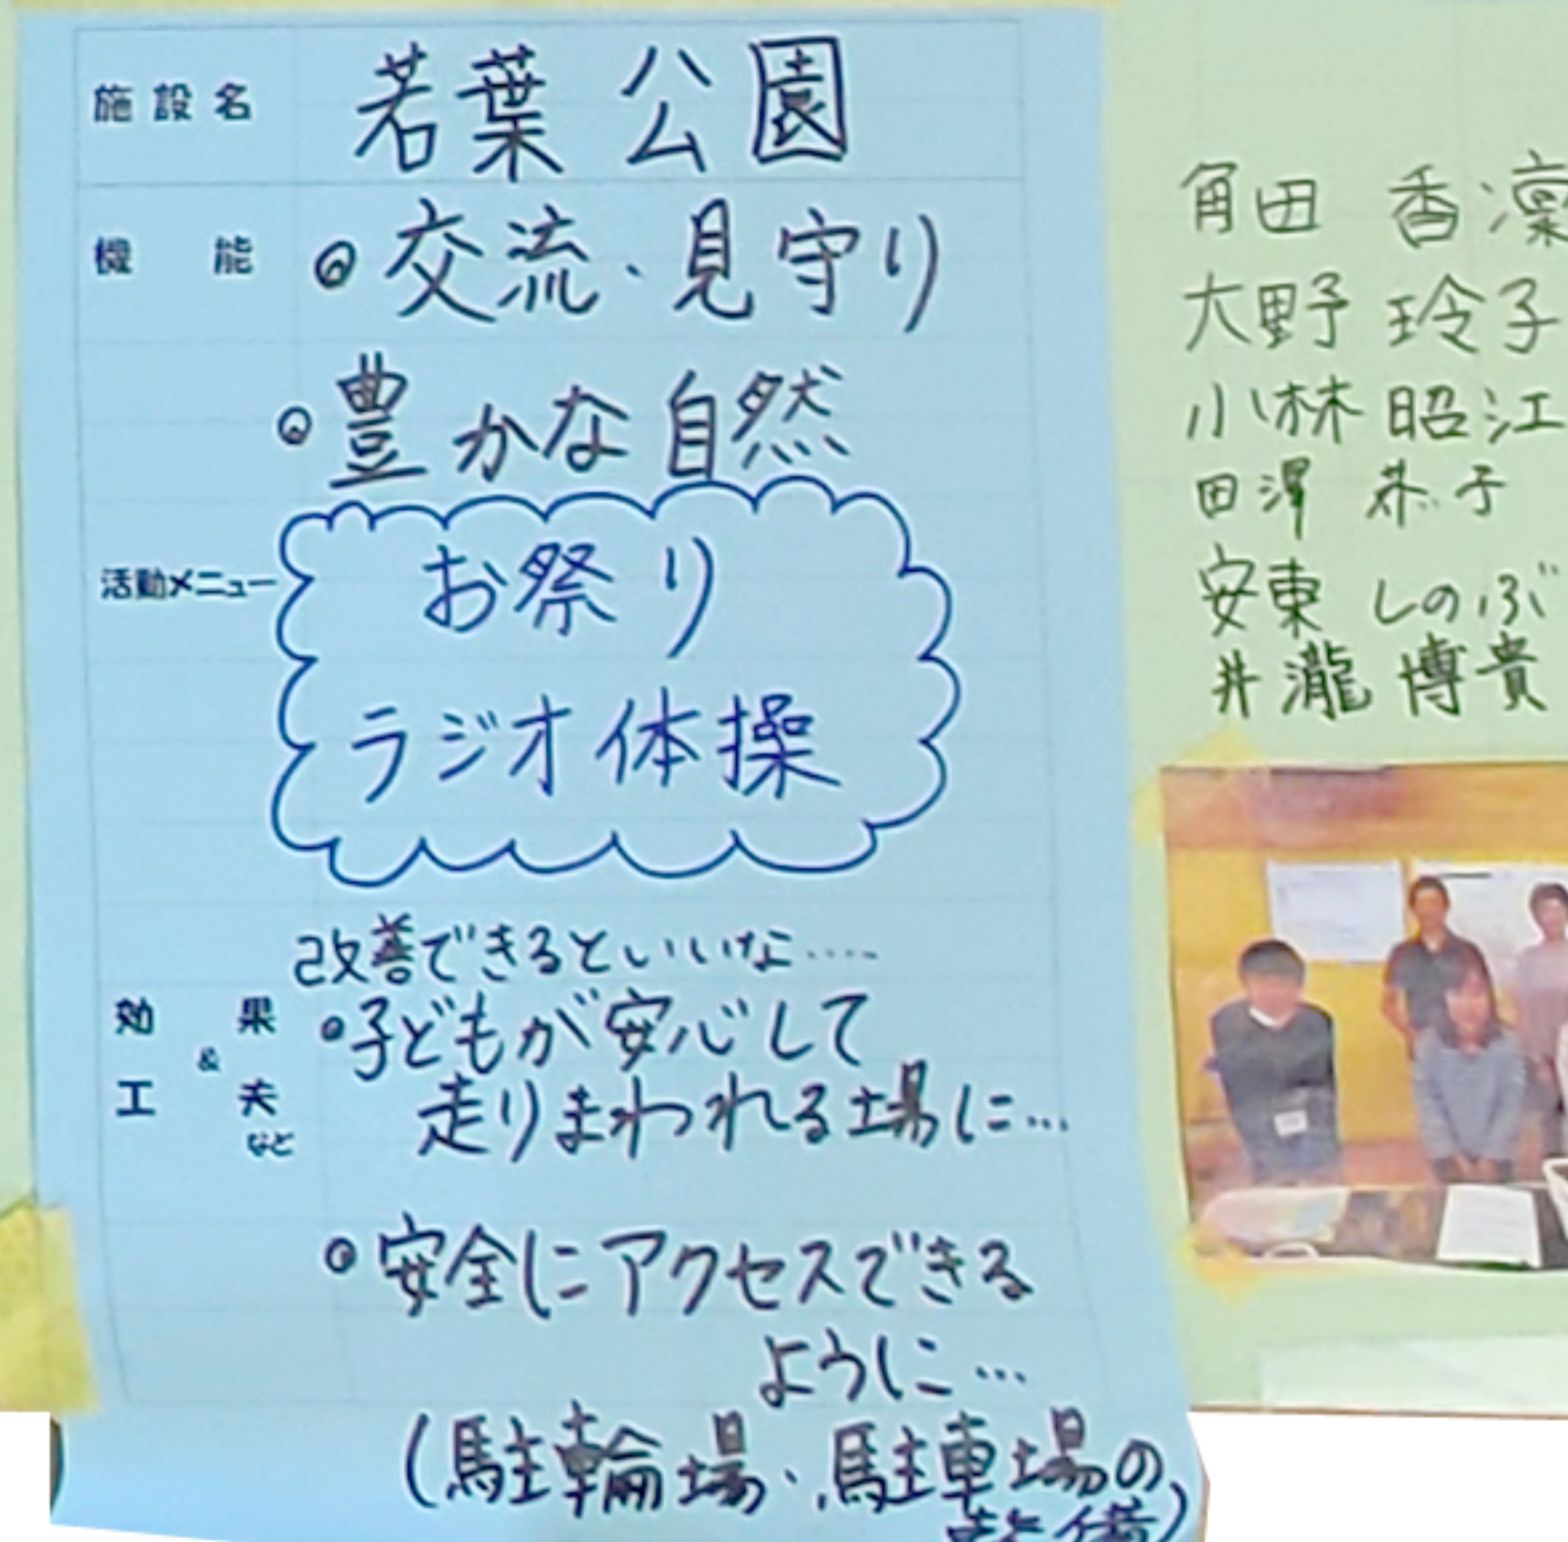 施設名 若葉公園
機能 ◎交流、見守り
◎豊かな自然
活動メニュー お祭り
ラジオ体操
改善できるといいな……
効果&工夫など
◎子どもが安心して
走りまわれる場に…
◎安全にアクセスできる
ように…
(駐輪場、駐車場の
整備)
角田 香凜
大野 玲子
小林 昭江
田澤 恭子
安東 しのぶ
井瀧 博貴